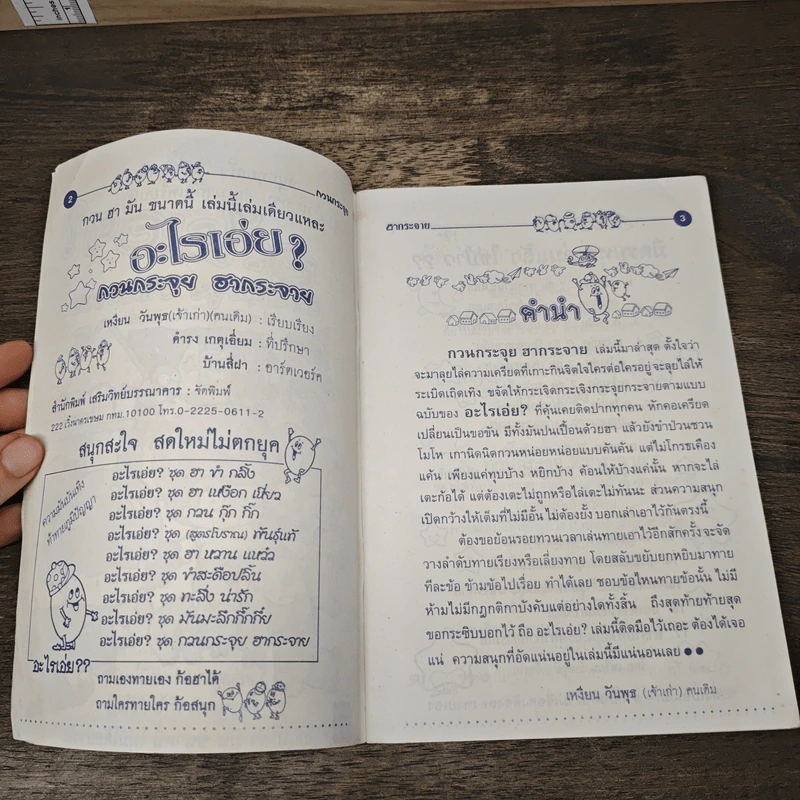 2
กวนกระจุย
กวน ฮา มัน ขนาดนี้ เล่มนี้เล่มเดียวแหละ
อะไรเอ่ย?
กวนกระจุย ฮากระจาย
เหงียน วันพุธ(เจ้าเก่า)(คนเดิม) : เรียบเรียง
ดำรง เกตุเอี่ยม : ที่ปรึกษา
บ้านสี่ฝา : อาร์ตเวอร์ค
สำนักพิมพ์ เสริมวิทย์บรรณาคาร : จัดพิมพ์
222 เวิ้งนาครเขษม กทม.10100 โทร.0-2225-0611-2
สนุกสะใจ สดใหม่ไม่ตกยุค
ความมันบันเทิง
ท้าทายภูมิปัญญา
อะไรเอ่ย? ชุด ฮา ขำ กลิ้ง
อะไรเอ่ย? ชุด ฮา เหงือก แห้ว
อะไรเอ่ย? ชุด กวน กุ๊ก กิ๊ก
อะไรเอ่ย? ชุด (สูตรโบราณ) พันธุ์แท้
อะไรเอ่ย? ชุด ฮา หวาน แหวว
อะไรเอ่ย? ชุด ขำสะดือปลิ้น
อะไรเอ่ย? ชุด ทะลึ่ง น่ารัก
อะไรเอ่ย? ชุด มันมะลึกกึ๊กกึ๋ย
อะไรเอ่ย? ชุด กวนกระจุย ฮากระจาย
อะไรเอ่ย??
ถามเองทายเอง ก้อฮาได้
ถามใครทายใคร ก้อสนุก
ฮากระจาย
3
คำนำ
กวนกระจุย ฮากระจาย เล่มนี้มาล่าสุด ตั้งใจว่า
จะมาลุยไล่ความเครียดที่เกาะกินจิตใจใครต่อใครอยู่ จะลุยไล่ให้
ระเบิดเถิดเทิง ขจัดให้กระเจิดกระเจิงกระจุยกระจายตามแบบ
ฉบับของ อะไรเอ่ย? ที่คุ้นเคยติดปากทุกคน หักคอเครียด
เปลี่ยนเป็นขอขัน มีทั้งมันปนเปื้อนด้วยฮา แล้วยังขำป่วนชวน
โมโห เกานิดนิดกวนหน่อยหน่อยแบบคันคัน แต่ไม่โกรธเคือง
แค้น เพียงแค่ทุบบ้าง หยิกบ้าง ค้อนให้บ้างแค่นั้น หากจะไล่
เตะก้อได้ แต่ต้องเตะไม่ถูกหรือไล่เตะไม่ทันนะ ส่วนความสนุก
เปิดกว้างให้เต็มที่ไม่มีอั้น ไม่ต้องยั้ง บอกเล่าเอาไว้กันตรงนี้
ต้องขอย้อนรอยทวนเวลาเล่นทายเอาไว้อีกสักครั้ง จะจัด
วางลำดับทายเรียงหรือเลี่ยงทาย โดยสลับขยับยกหยิบมาทาย
ทีละข้อ ข้ามข้อไปเรื่อย ทำได้เลย ชอบข้อไหนทายข้อนั้น ไม่มี
ห้ามไม่มีกฎกติกาบังคับแต่อย่างใดทั้งสิ้น ถึงสุดท้ายท้ายสุด
ขอกระซิบบอกไว้ ถือ อะไรเอ่ย? เล่มนี้ติดมือไว้เถอะ ต้องได้เจอ
แน่ ความสนุกที่อัดแน่นอยู่ในเล่มนี้มีแน่นอนเลย ●●
เหงียน วันพุธ (เจ้าเก่า) คนเดิม